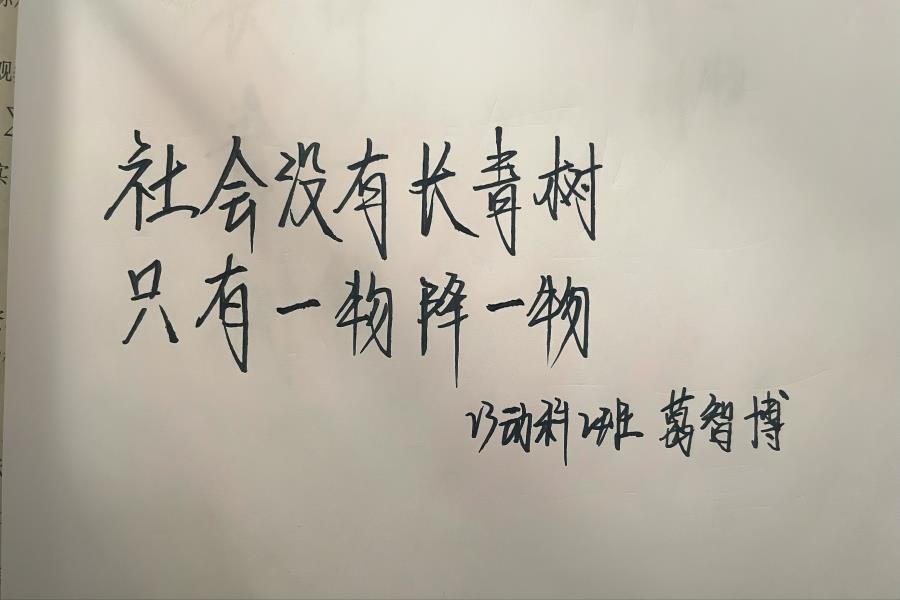 社会没有长青树
只有一物降一物
23动科2班 葛智博
观
实